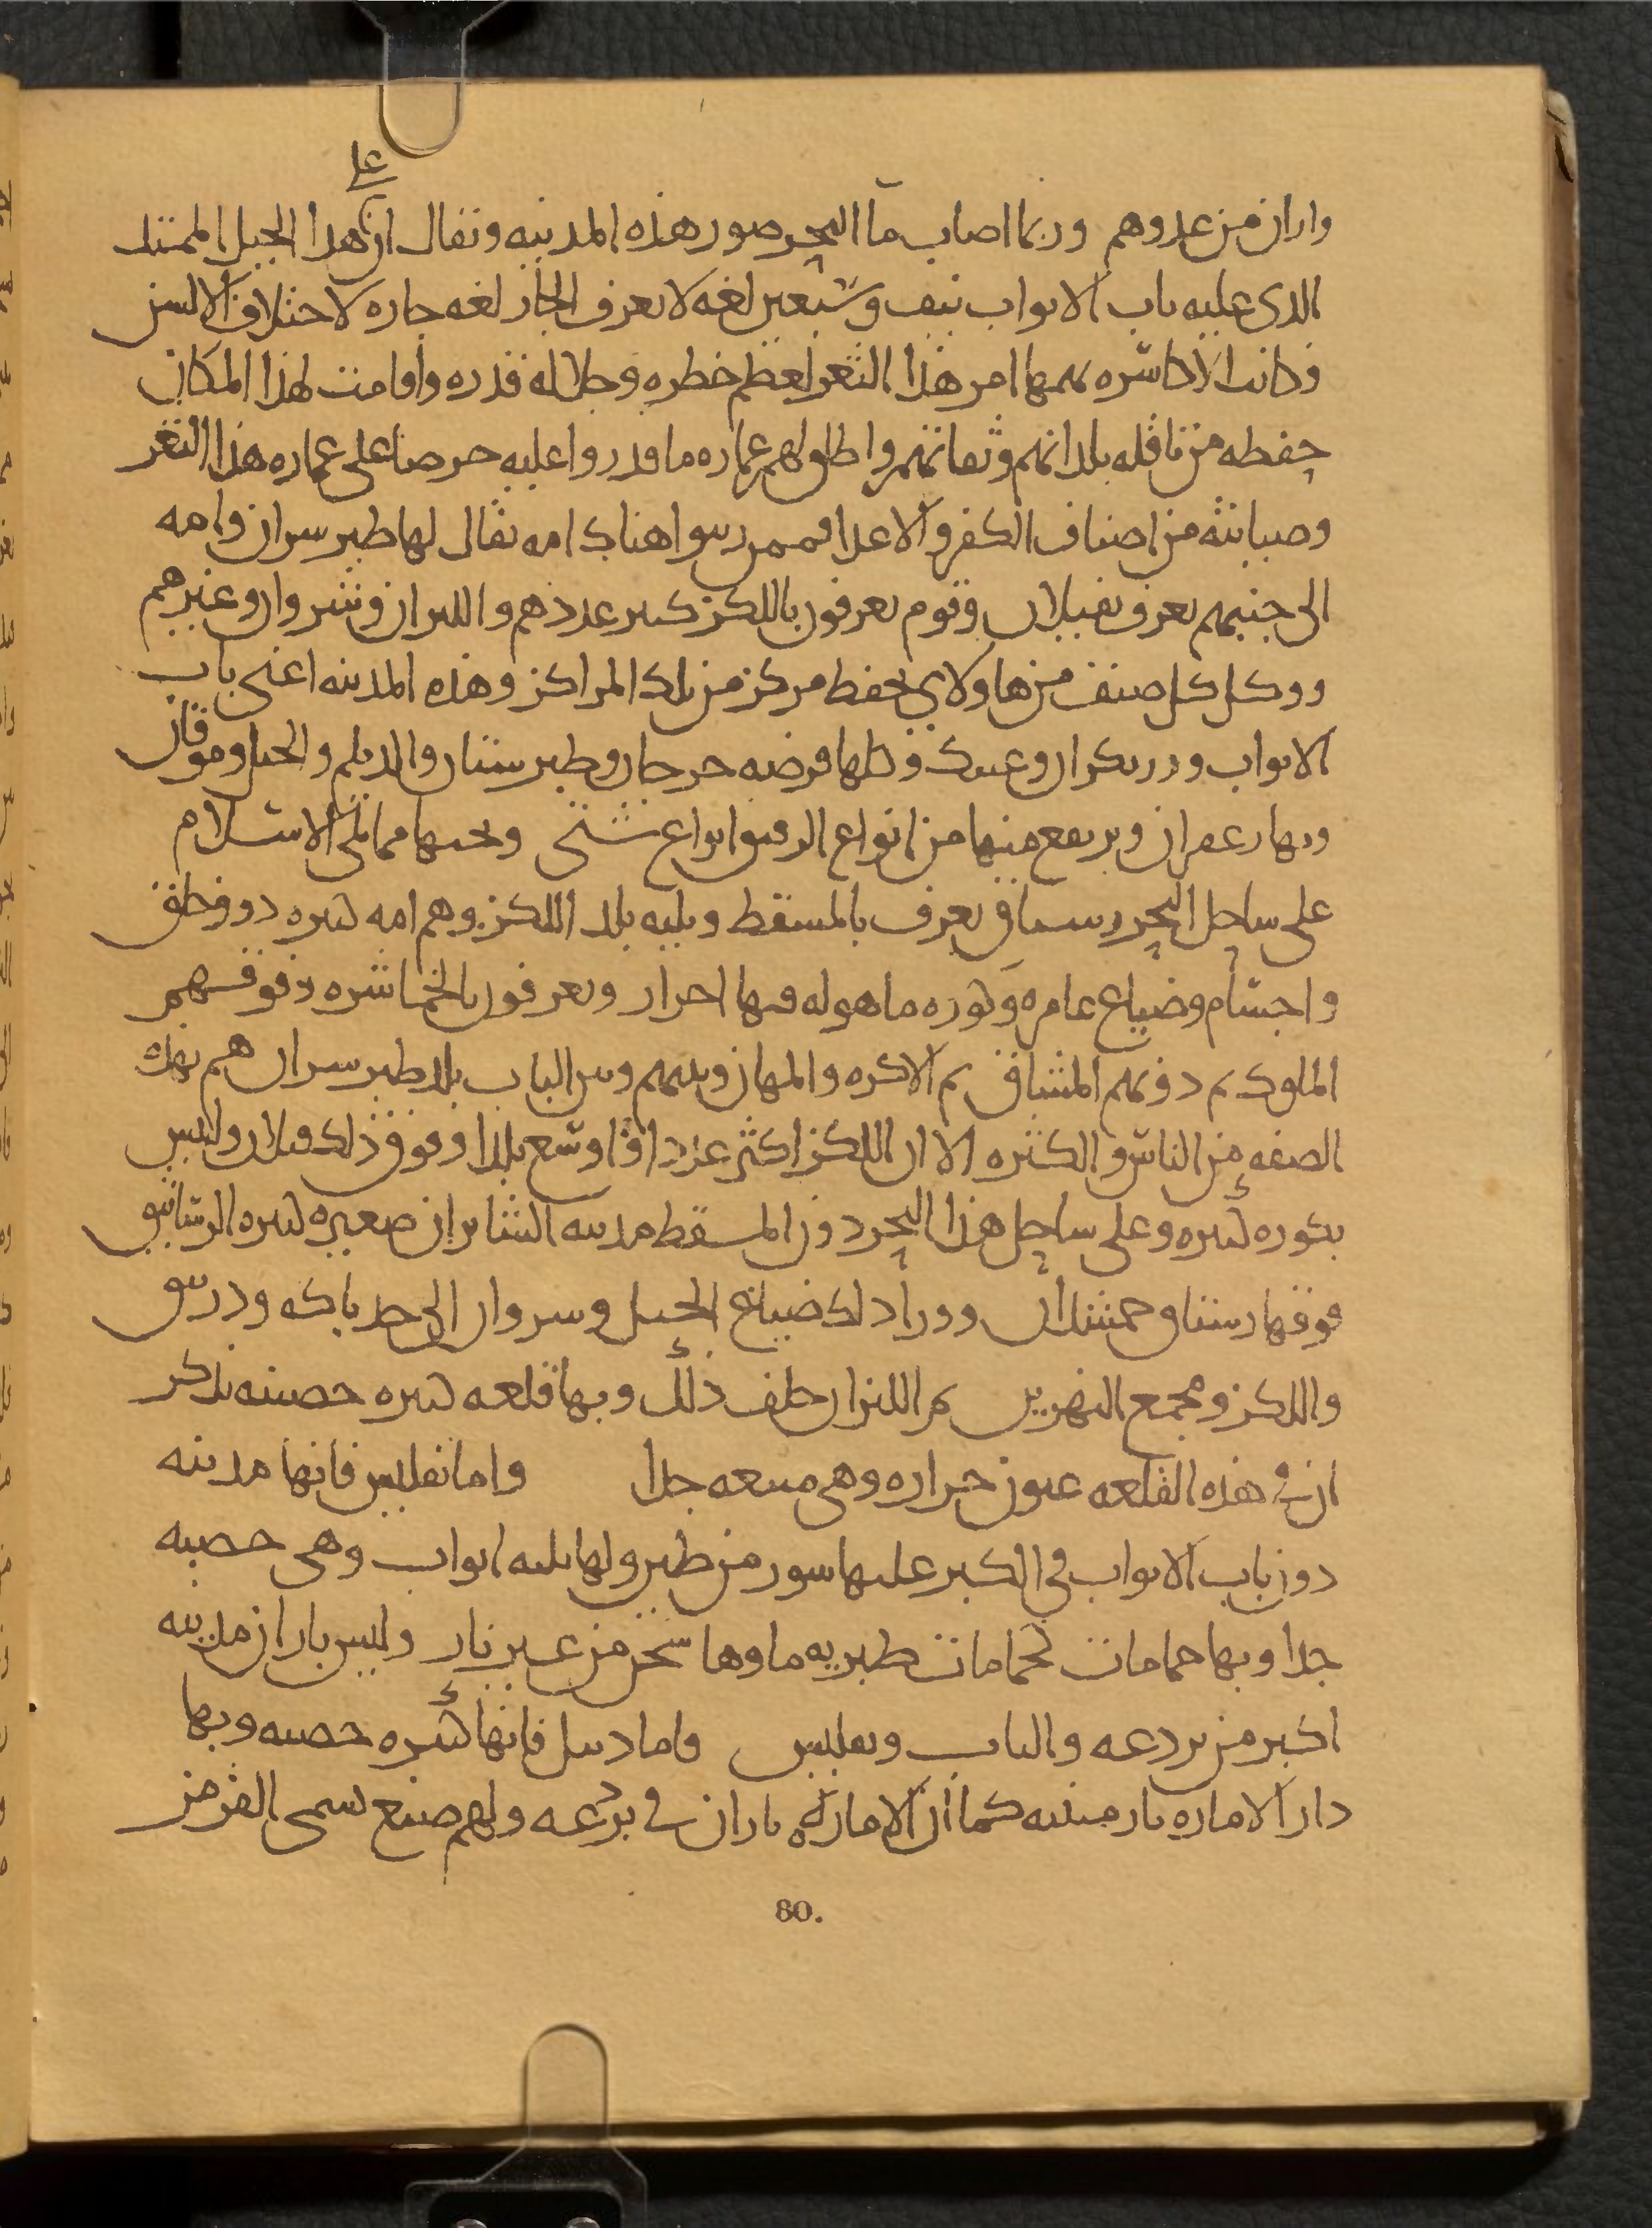 على
واران من عدوهم وربما اصاب ماء البحر صور هذه المدينه ويقال ان هذا الجبل الممتد
الذى عليه باب الابواب نيف وسبعين لغه لا يعرف الجار لغه جاره لاختلاف الالسن
وكانت الاكاسره يهمها امر هذا الثغر لعظم خطره وجلاله قدره واقامت لهذا المكان
حفظه من ناقله بلدانهم وثقاتهم واطلق لهم عماره ما قدروا عليه حرصا على عماره هذا الثغر
وصيانته من اصناف الكفر والاعدا فممن رتبوا هناك امه يقال لها طبرسران وامه
الى جنبهم يعرف بفيلان وقوم يعرفون باللكز كبير عددهم والليران وشروان وغيرهم
ووكل كل صنف من هاولاى بحفظ مركز من تلك المراكز وهذه المدينه اعنى باب
الابواب ودربكران وعبدك وكلها فرضه جرجان وطبرستان والديلم والجبل وموقان
وبها زعفران ويرتفع منها من انواع الرقيق انواع شتى وتحتها مما يلى الاسلام
على ساحل البحر رستاق يعرف بالمسقط ويليه بلد اللكز وهم امه كثيره ذوو خلق
واجسام وضياع عامره وكوره ماهوله فيها احرار ويعرفون بالخماشره وفوقهم
الملوك ثم دونهم المشاق ثم الاكره والمهان وبينهم وبين الباب بلد طبرسران هم بهذه
الصفه من الناس والكثره الا ان اللكز اكثر عددا واوسع بلدا وفوق ذلك فيلان وليس
بكوره كبيره وعلى ساحل هذا البحر دون المسقط مدينه الشابران صغيره كثيره الرساتيق
فوقها رستاق جمشدان وورا ذلك ضياع الجبل وسروان الى حد باكه ودرنيق
واللكز ومجمع النهرين ثم الليزان خلف ذلك وبها قلعه كبيره حصينه يذكر
ان فى هذه القلعه عيون خراره وهى منيعه جدا واما تفليس فانها مدينه
دون باب الابواب فى الكبر عليها سور من طين ولها ثلثه ابواب وهى خصبه
جدا وبها حمامات كحمامات طبريه ماوها سخن من غير نار وليس باران مدينه
اكبر من بردعه والباب وتفليس واما دبيل فانها كبيره خصبه وبها
دار الاماره بارمينيه كما ان الاماره باران فى بردعه ولهم صبغ يسمى القرمز
80.